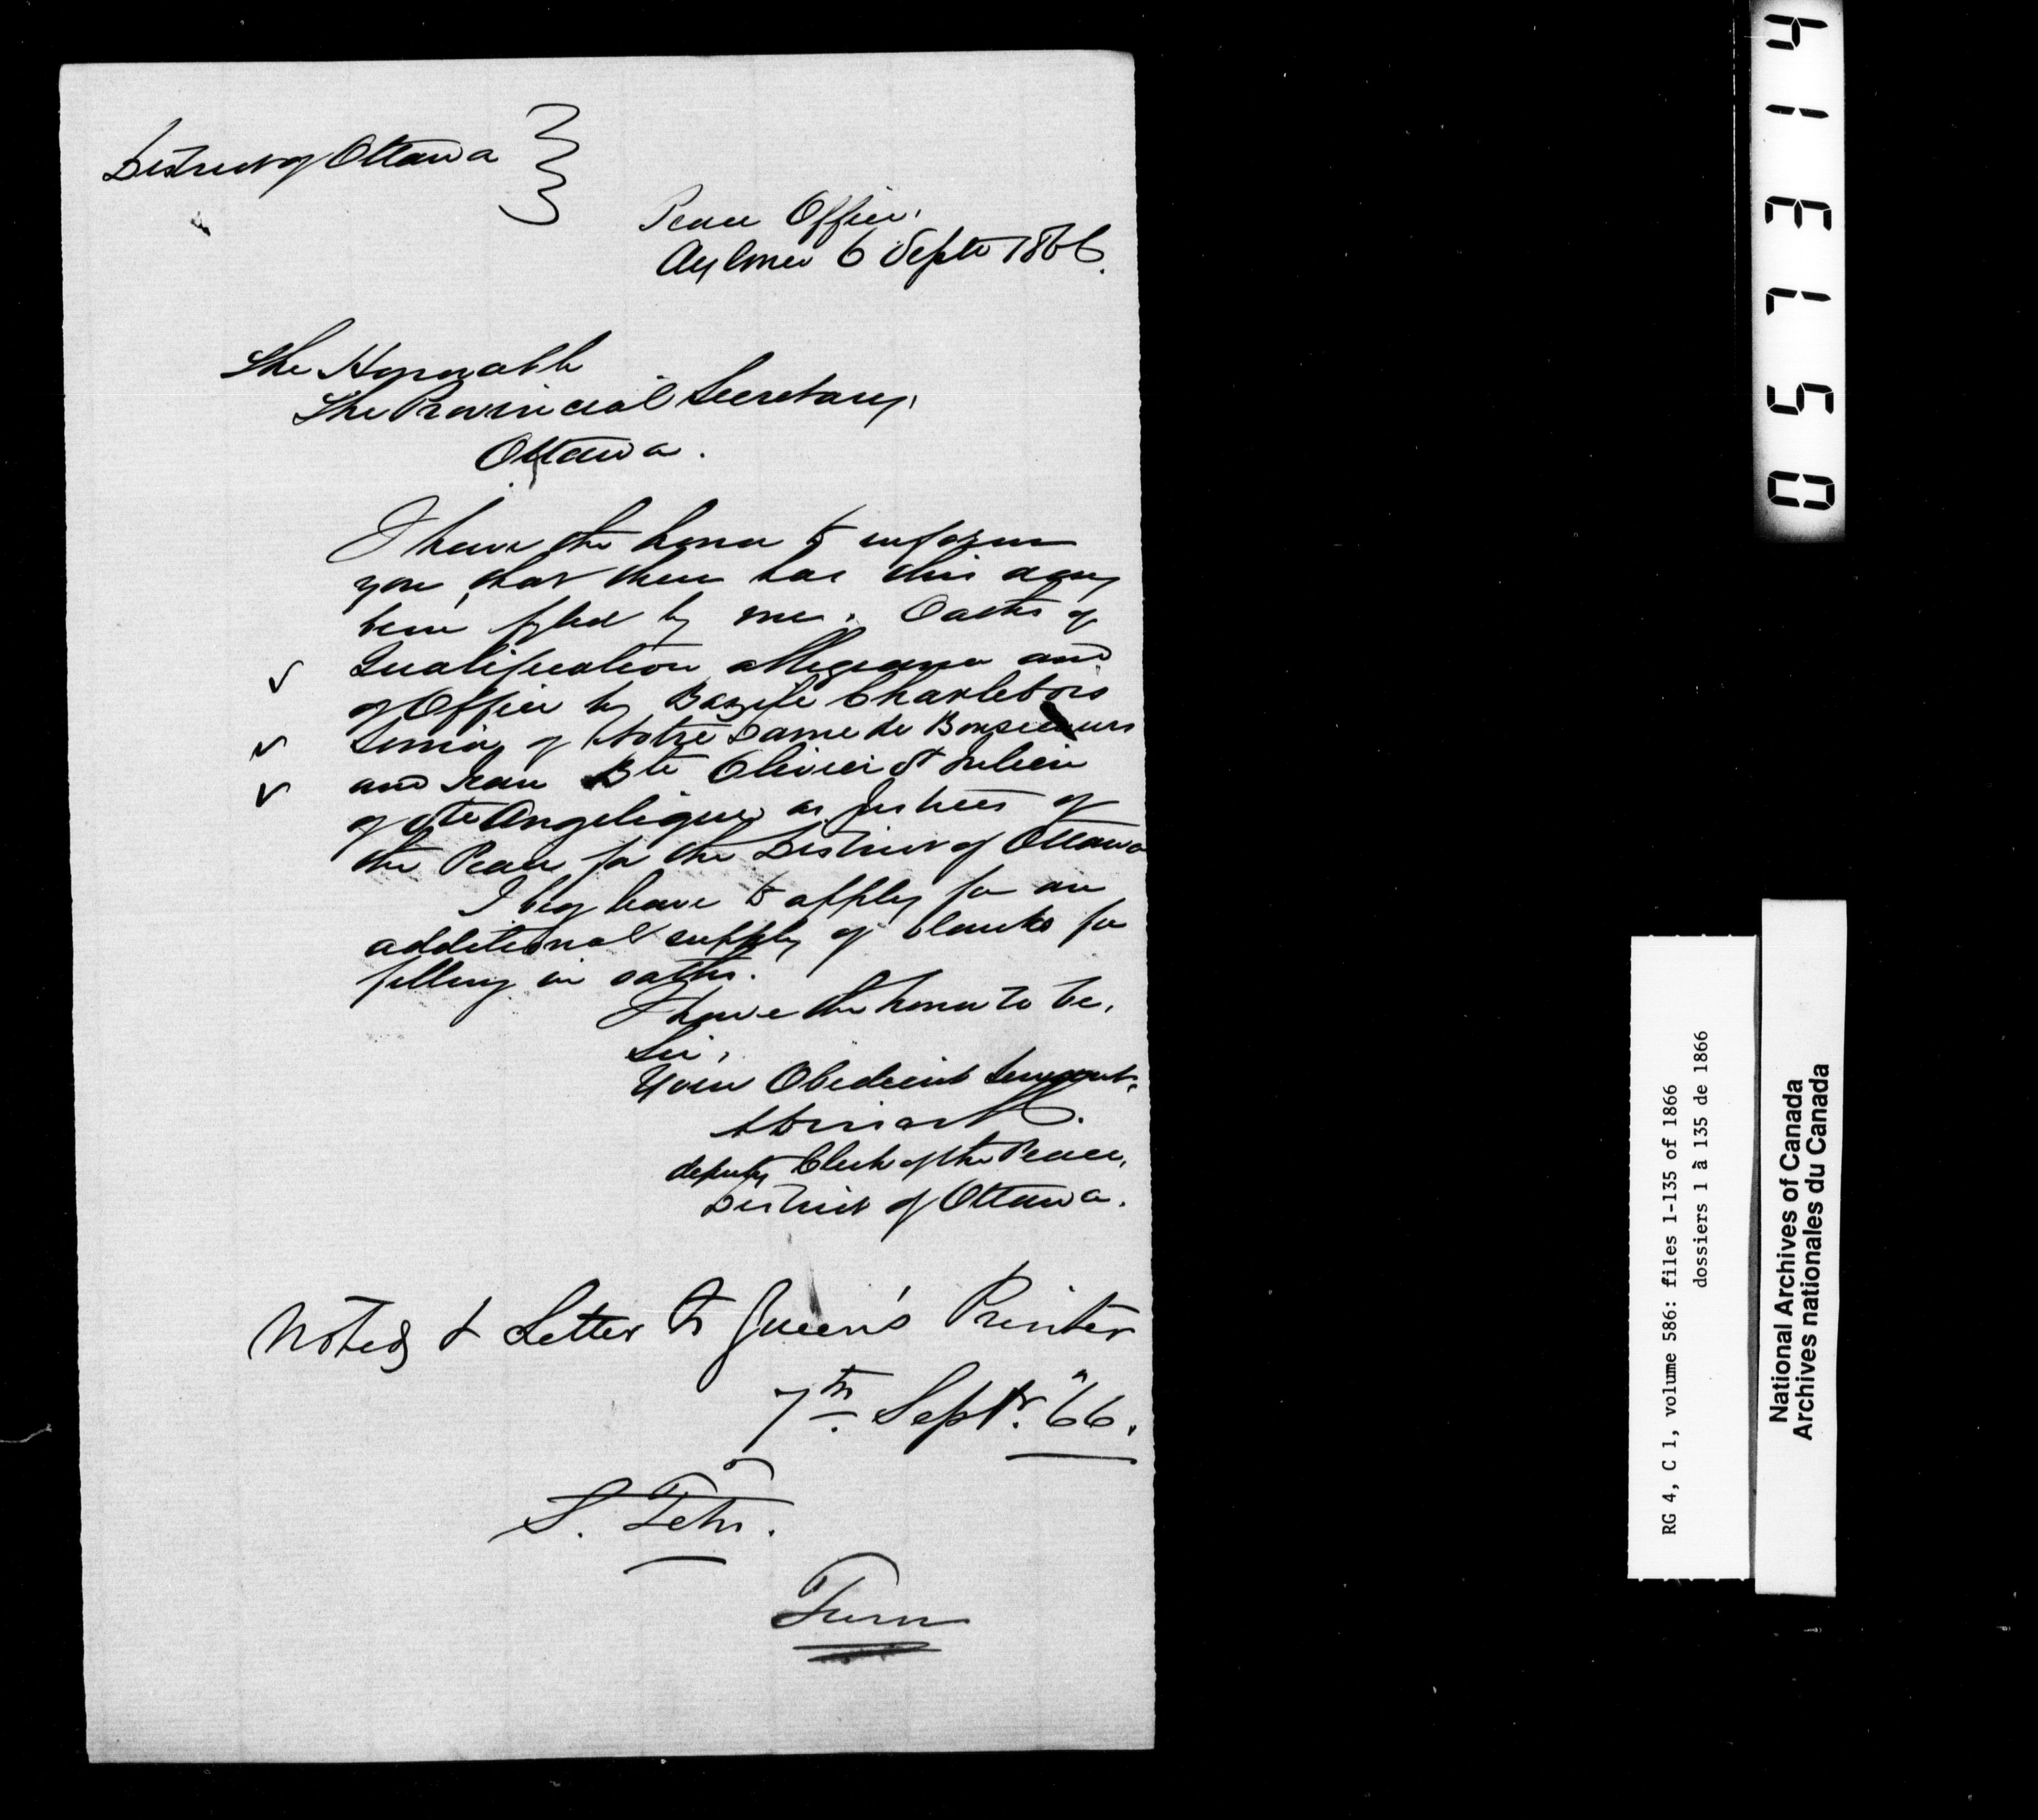 District of Ottawa
Peace Office,
Aylmer 6 Septr 1866.
The Honorable
The Provincial Secretary,
Ottawa.
I have the honor to inform
you, that there has this day
been fyled by me, Oaths of
Qualification allegiance and
of Office by Bazile Charlebois
Senior of Notre Dame de Bonsecours
and Jean Bte Olivier St Julien
of Ste Angelique, as Justices of
the Peace for the District of Ottawa
I beg leave to apply for an
additional supply of blanks for
filling in oaths.
I have the honor to be,
Sir,
Your Obedient Servant,
deputy Clerk of the Peace,
District of Ottawa.
Noted & Letter to Queen's Printer
7th Septr. "66.
Turn
RG 4, C 1, volume 586: files 1-135 of 1866
dossiers 1 à 135 de 1866
National Archives of Canada
Archives nationales du Canada
051314